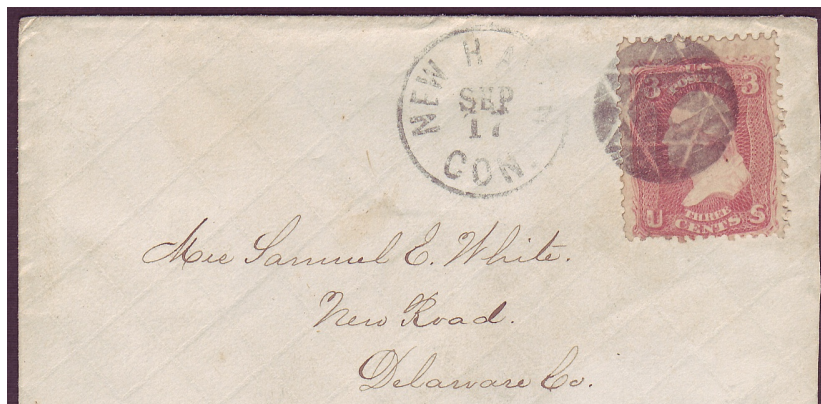 NEW HA
SEP
17
CON.
3 3
U.S.
POSTAGE
U S
THREE
CENTS
Samuel E. White.
New Road.
Delaware Co.